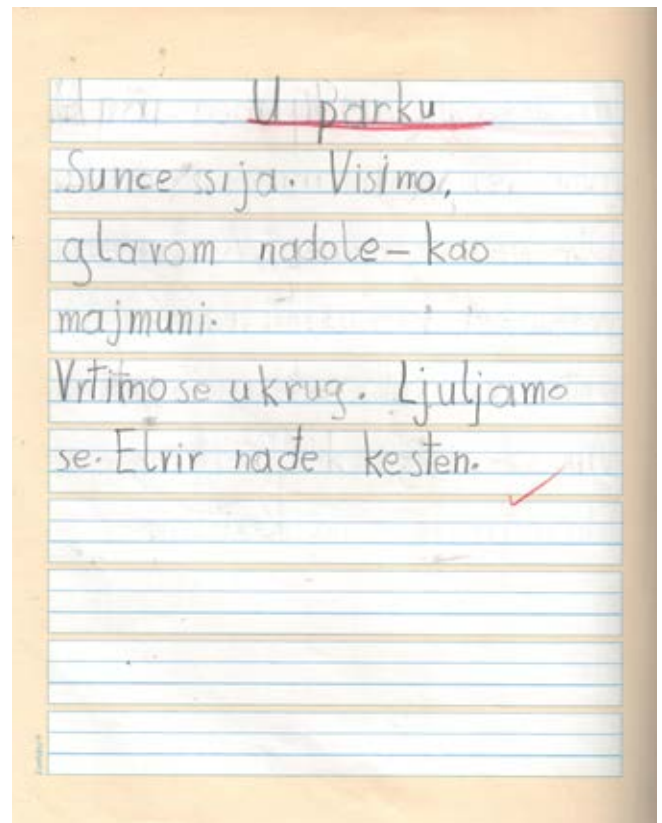 U parku
Sunce sija. Visimo,
glavom nadole - kao
majmuni.
Vrtimo se ukrug. Ljuljamo
se. Elvir nađe kesten.